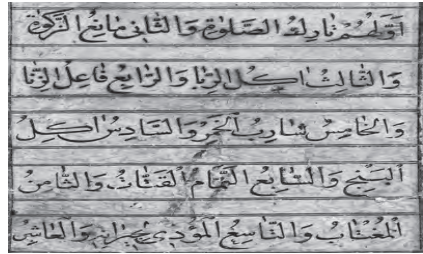 اَوَّلُهُمْ تَارِكُ الصَّلٰوةِ وَالثَّانِى مَانِعُ الزَّكٰوةِ
وَالثَّالِثُ اٰكِلُ الرِّبَا وَالرَّابِعُ فَاعِلُ الزِّنَا
وَالْخَامِسُ شَارِبُ الْخَمْرِ وَالسَّادِسُ اٰكِلُ
وَالسَّابِعُ النَّمَّامُ وَالثَّامِنُ
اَلْمُغْتَابُ وَالتَّاسِعُ الْمُؤْذِى جِيْرَانِهِ وَالْعَاشِرُ